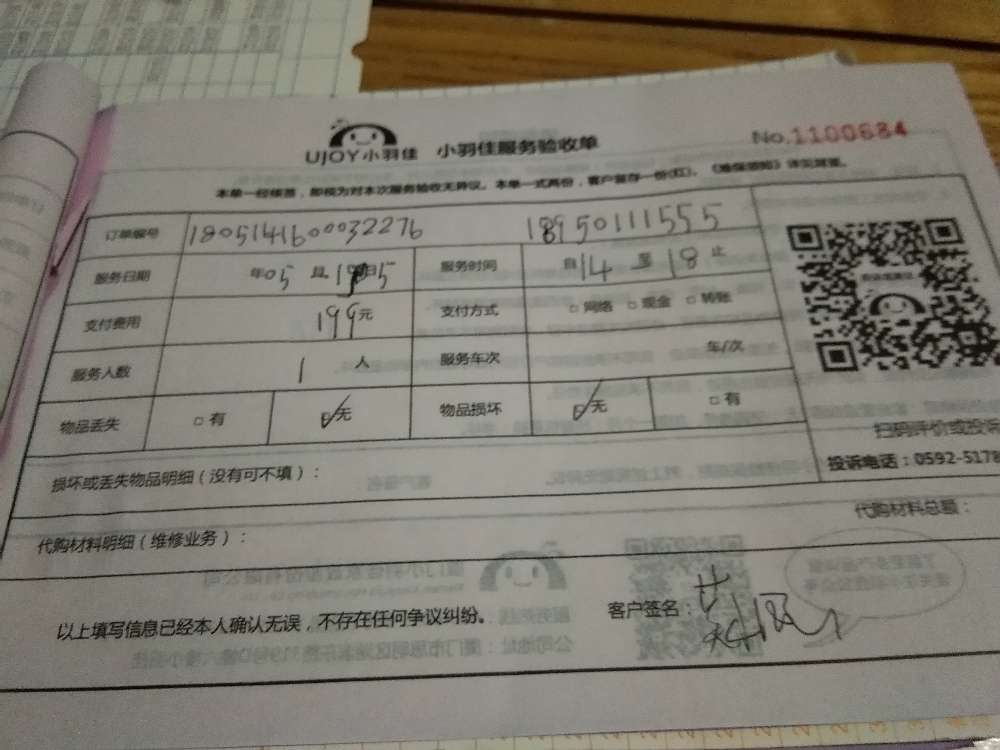 UJOY小羽佳 小羽佳服务验收单 No.1100684
本单一经核签，即视为对本次服务验收无异议。本单一式两份，客户留存一份(红)。
订单编号 1805141600032276 18950111555
服务日期 年05月 日 服务时间 自14至18止
支付费用 199元 支付方式 □网络 □现金 □转账
服务人数 1人 服务车次 车/次
物品丢失 □有 ☑无 物品损坏 ☑无 □有
扫码评价或投诉
损坏或丢失物品明细（没有可不填）： 投诉电话：0592-5178
代购材料明细（维修业务）： 代购材料总额：
以上填写信息已经本人确认无误，不存在任何争议纠纷。 客户签名：